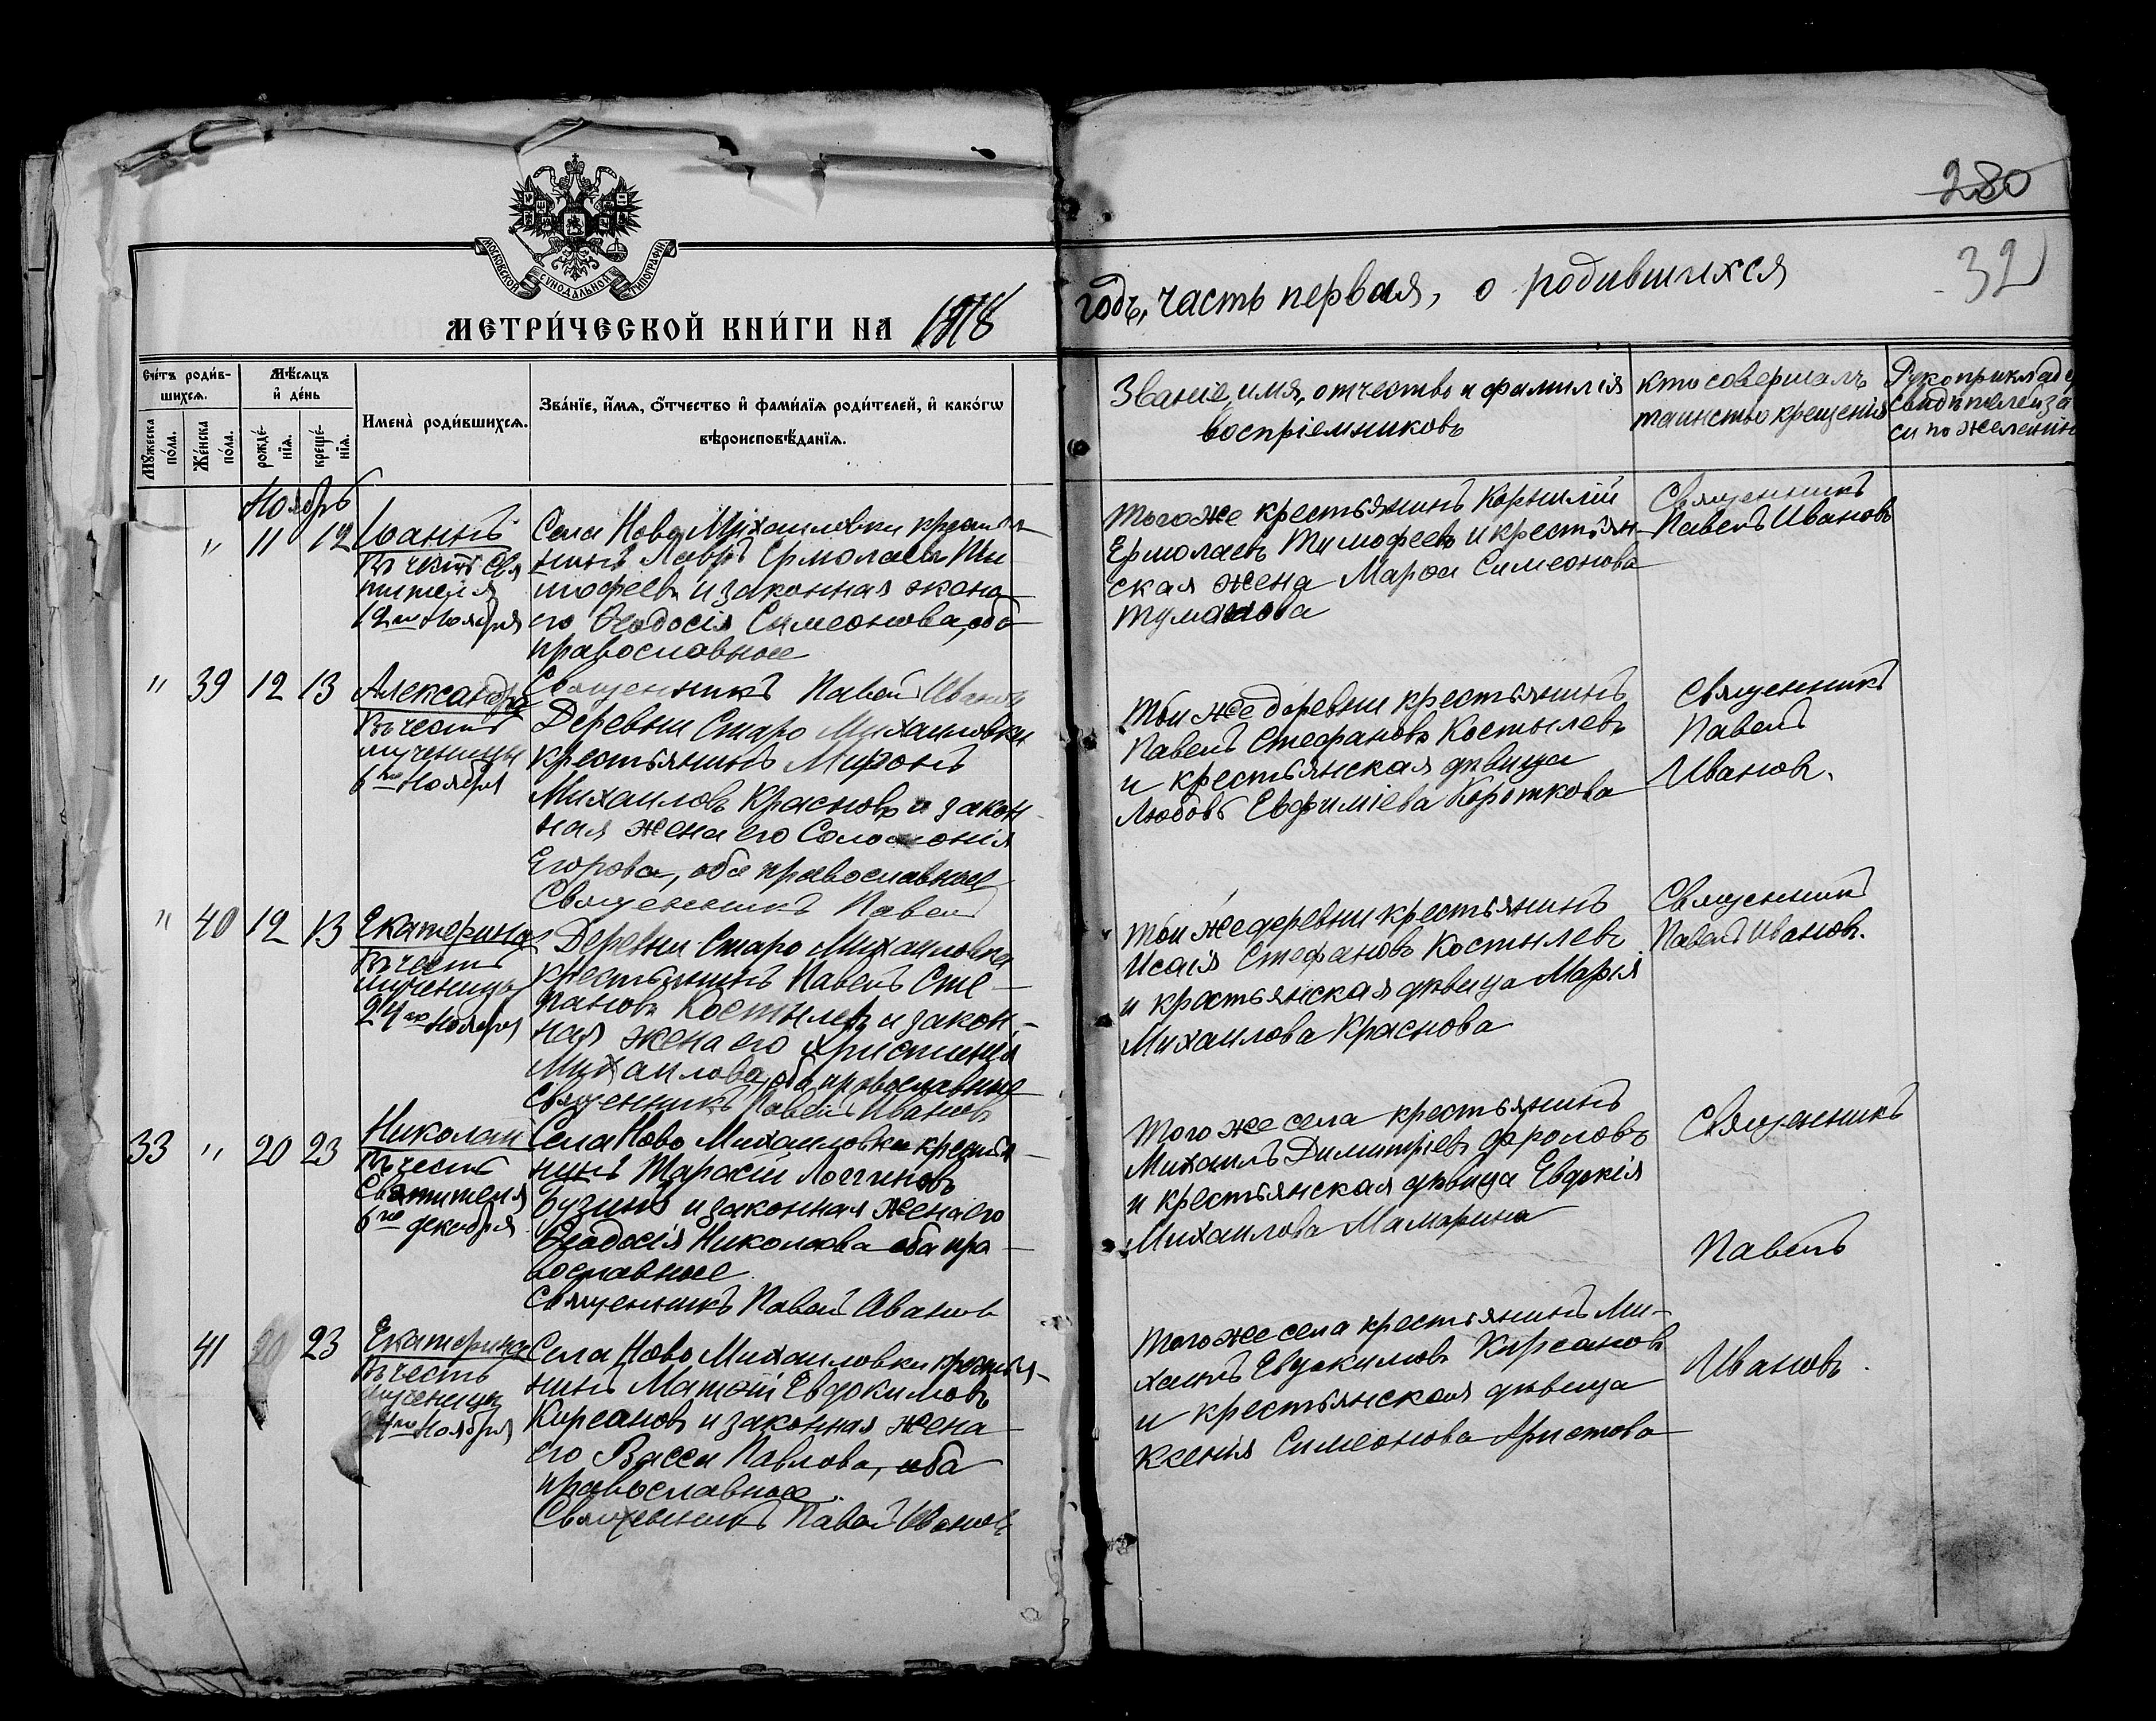 280
32
МОСКОВСКОЙ СѴНОДАЛЬНОЙ ТИПОГРАФІИ
МЕТРИ́ЧЕСКОЙ КНИ́ГИ НА 1918
годъ, часть первая, о родившихся
Сче́тъ роди́в-
шихся.
Мꙋ́жеска по́ла.
Же́нска по́ла.
Мѣ́сяцъ
и҆ де́нь
рожде́-
нїѧ.
креще́-
нїѧ.
И҆мена̀ роди́вшихсѧ.
Зва́нїе, и҆́мѧ, ѻ҆́тчество и҆ фами́лїѧ роди́телей, и҆ како́гѡ
вѣроисповѣ́данїѧ.
Званіе, имя, отчество и фамилія
воспріемниковъ
кто совершалъ
таинство крещенія
Рукоприклад
свидѣтелей за
си по желанію
Ноябрь
" 11 12
Іоаннъ
Въ честь Свя
тителя
12го Ноября
Села Ново Михаиловки крестья
нинъ Лавръ Ермолаевъ Ти
мофеевъ и законная жена
его Ѳеодосія Симеонова, оба
православные
Священникъ Павелъ Ивановъ
Тогоже крестьянинъ Корнилій
Ермолаевъ Тимофеевъ и крестьян-
ская жена Марѳа Симеонова
Туманова
Священникъ
Павелъ Ивановъ
" 39 12 13
Александра
Въ честь
мученицы
6го Ноября
Деревни Старо Михаиловки
крестьянинъ Миронъ
Михаиловъ Красновъ и закон
ная жена его Соломонія
Егорова, оба православные
Священникъ Павелъ
Той же деревни крестьянинъ
Павелъ Стефановъ Костылевъ
и крестьянская дѣвица
Любовь Евфиміева Короткова
Священникъ
Павелъ
Ивановъ.
" 40 12 13
Екатерина
Въ честь
мученицы
24го Ноября
Деревни Старо Михаиловки
крестьянинъ Павелъ Сте-
пановъ Костылевъ и закон-
ная жена его Христинія
Михаилова, оба православные
Священникъ Павелъ Ивановъ
Той же деревни крестьянинъ
Исаія Стефановъ Костылевъ
и крестьянская дѣвица Марія
Михаилова Краснова
Священникъ
Павелъ Ивановъ.
33 " 20 23
Николай
Въ честь
Святителя
6го декабря
Села Ново Михаиловки крестья-
нинъ Тарасій Логгиновъ
Бузинъ и законная жена его
Ѳеодосія Николаева оба пра-
вославные
Священникъ Павелъ Ивановъ
Того же села крестьянинъ
Михаилъ Димитріевъ Фроловъ
и крестьянская дѣвица Евдокія
Михаилова Мамарина
Священникъ
Павелъ
41 20 23
Екатерина
Въ честь
мученицы
24го Ноября
Села Ново Михаиловки крестья-
нинъ Матѳій Евдокимовъ
Кирсановъ и законная жена
его Васса Павлова, оба
православные.
Священникъ Павелъ Ивановъ
Того же села крестьянинъ Ми-
хаилъ Евдокимовъ Кирсановъ
и крестьянская дѣвица
Ксенія Симеонова Аристова
Ивановъ.